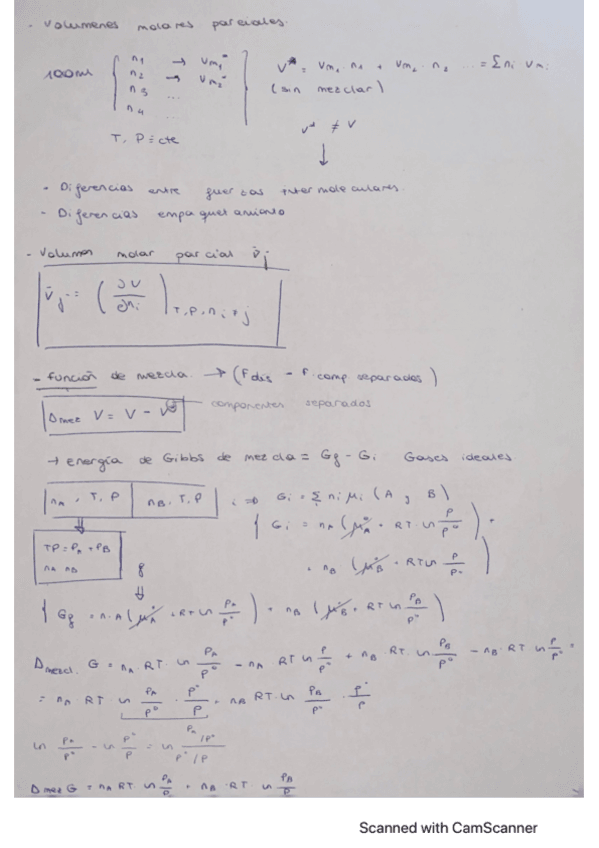 - Volumenes molares parciales.
100ml { n1 → Vm1* V* = Vm1 · n1 + Vm2 · n2 ... = Σ ni Vmi
n2 → Vm2* (sin mezclar)
n3 ...
n4 ... V* ≠ V
T, P = cte ↓
- Diferencias entre fuerzas intermoleculares.
- Diferencias empaquetamiento
- Volumen molar parcial V̄j
V̄j = (∂V/∂ni) T, P, ni≠j
- función de mezcla → (F dis - F comp separados)
Dmez V = V - V* componentes separados
→ energía de Gibbs de mezcla = Gf - Gi Gases ideales
nA, T, P | nB, T, P i ⇒ Gi = Σ ni μi (A y B)
{ Gi = nA (μA° + RT ln P/P°) +
TP = PA + PB + nB (μB° + RT ln P/P°) }
nA nB f
⇓
{ Gf = nA (μA° + RT ln PA/P°) + nB (μB° + RT ln PB/P°) }
Dmezcl. G = nA · RT · ln PA/P° - nA RT ln P/P° + nB · RT · ln PB/P° - nB · RT ln P/P° =
= nA · RT ln PA/P° · P°/P + nB RT · ln PB/P° · P°/P
ln PA/P° - ln P°/P = ln PA/P° / P°/P
Dmez G = nA RT · ln PA/P + nB · RT · ln PB/P
Scanned with CamScanner